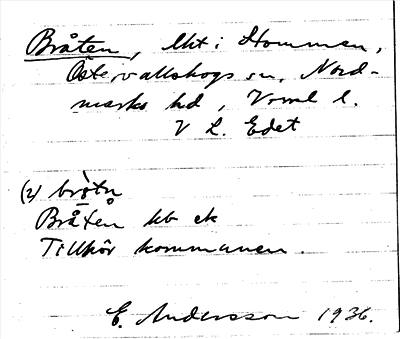 Bråten, lht i Hommen,
Östervallskogs sn, Nord-
marks hd, Vrml l.
V L. Edet
(2) brò̱tn̥
Bråten kb ek
Tillhör kommunen.
E. Andersson 1936.